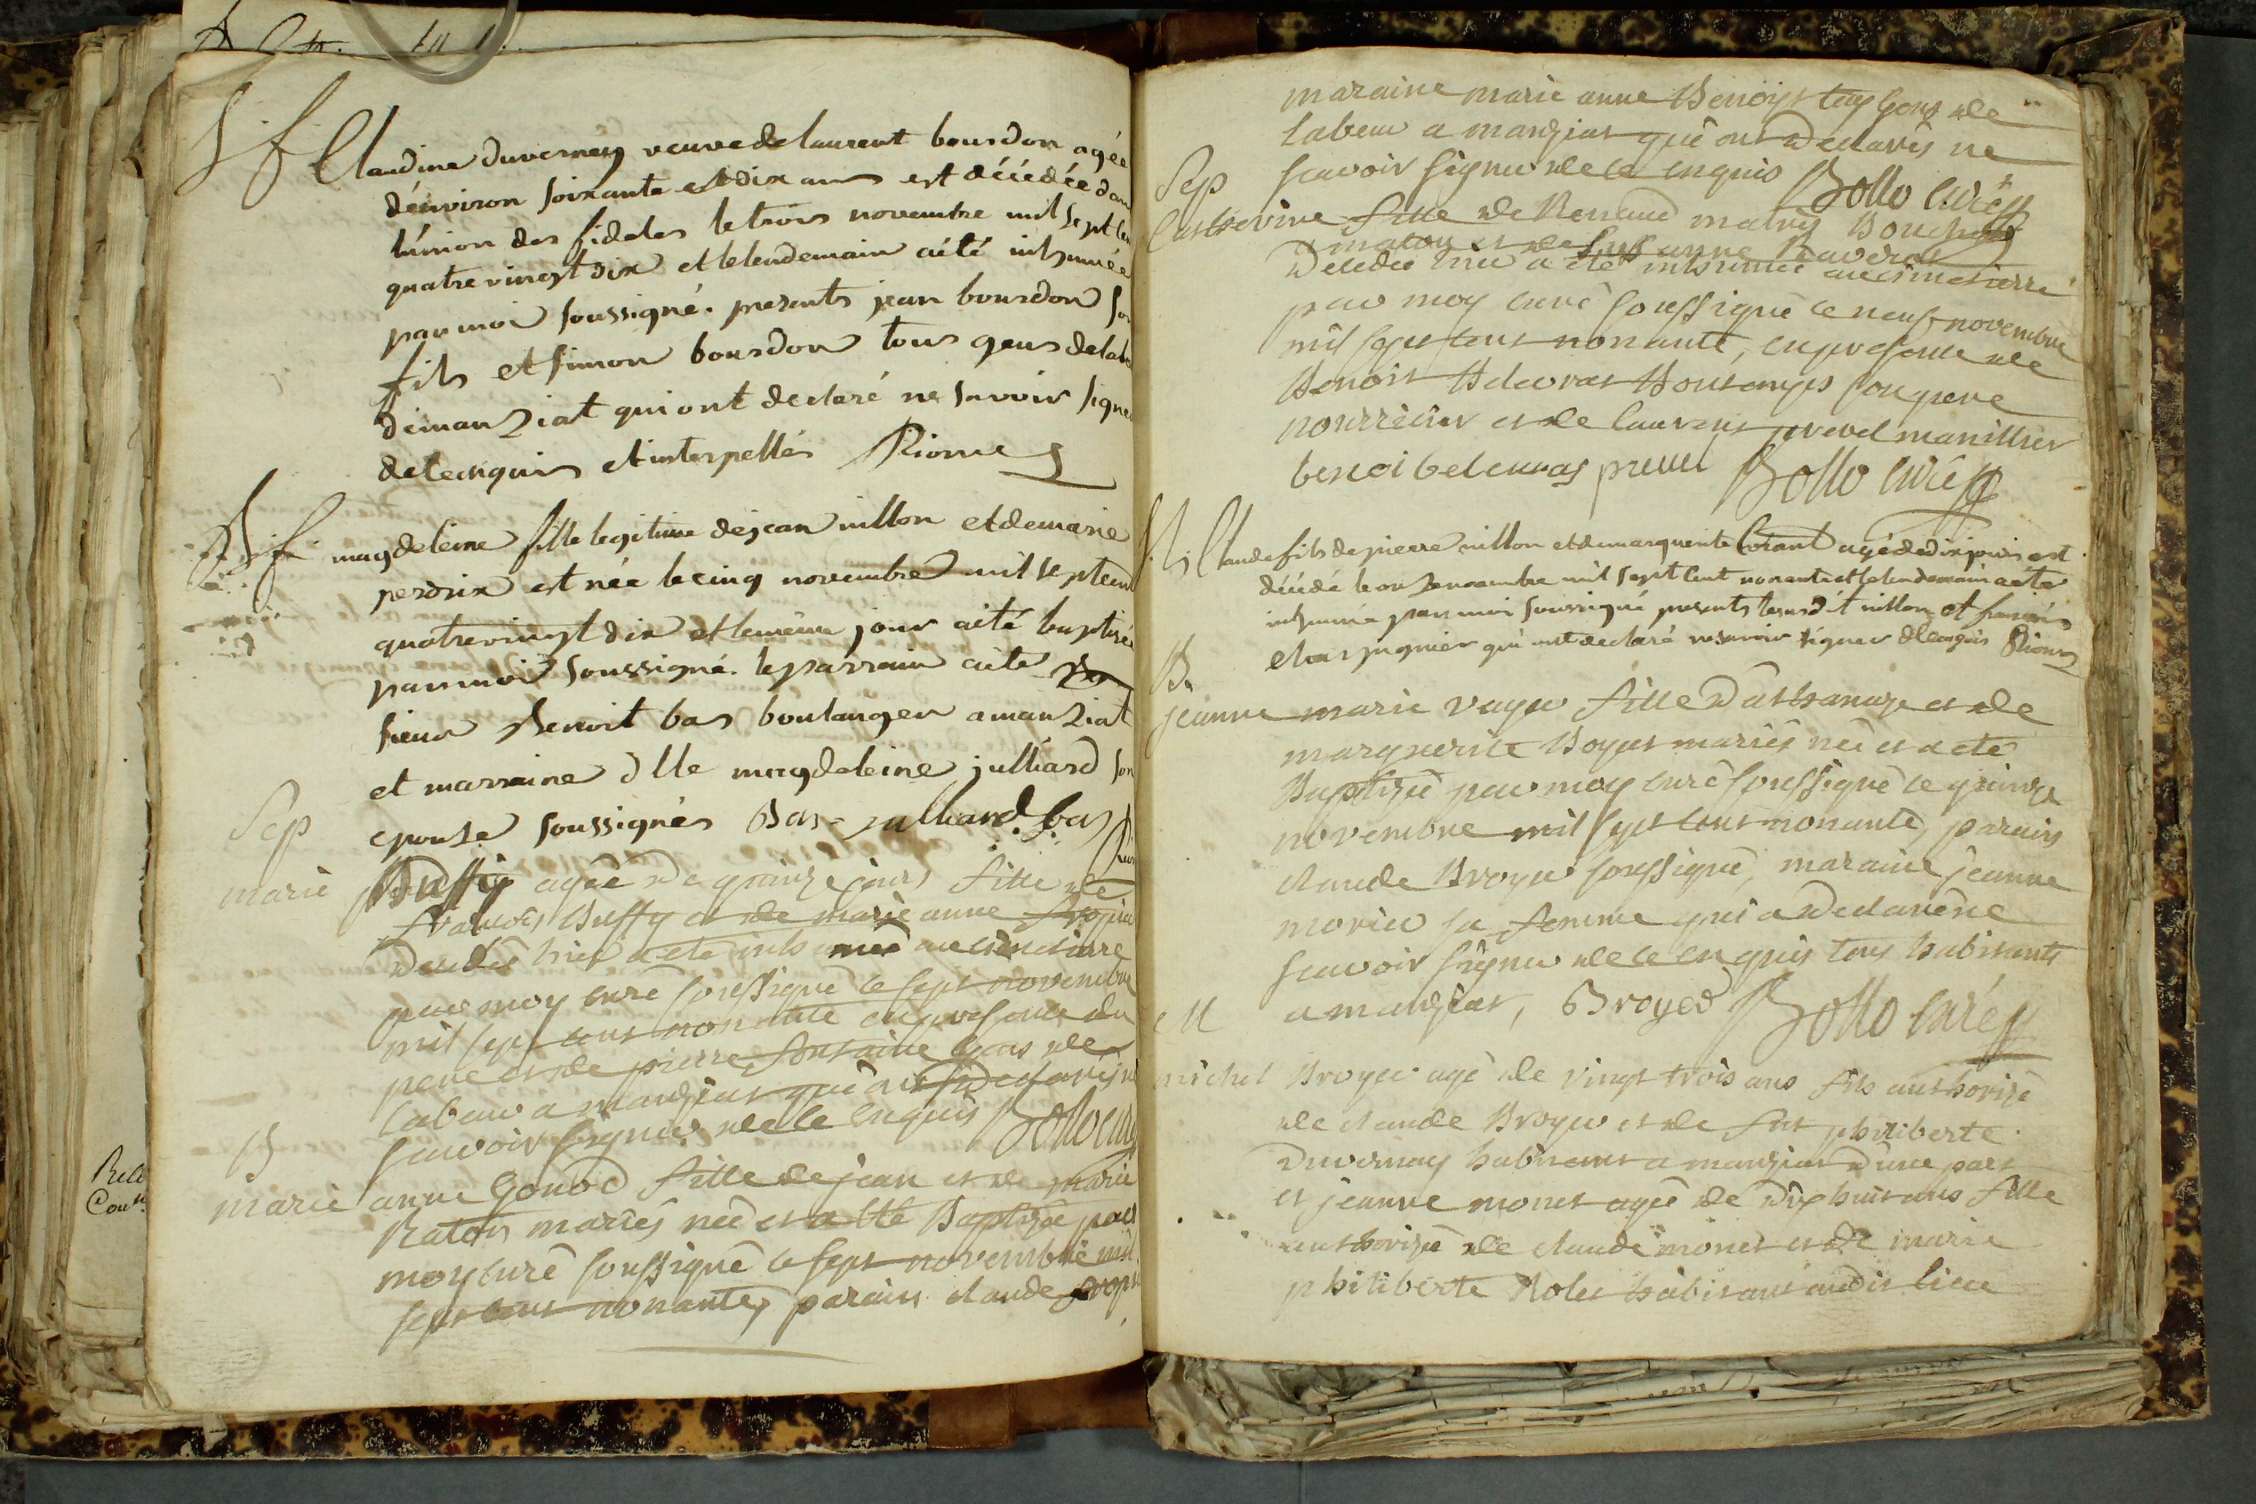 Claudine duvernay veuve de laurent bourdon agée
d'environ soixante et dix ans est décédée dans
l'union des fideles le trois novembre mil sept cent
quatre vingt dix et le lendemain a été inhumée
par moi soussigné. presents jean bourdon son
fils et simon bourdon tous gens de labeur
de manziat qui ont declaré ne savoir signer
de ce enquis et interpellés Rionne
magdeleine fille legitime de jean nillon et de marie
perdrix est née le cinq novembre mil sept cent
quatre vingt dix et le même jour a été baptisée
par moi soussigné. le parrain a été
sieur Benoit bas boulanger a manziat
et marraine dlle magdeleine julliard son
epouse soussignés Bas julliard bas
Sep
marie Buffy agée de quinze jours fille de
francois Buffy et de marie anne
decedée hier a été inhumée au cimetiarre
par moy curé soussigné le sept novembre
mil sept cent nonante en presence du
pere et de pierre fontaine gens de
labeur a manziat qui ont declarés ne
scavoir signer de ce enquis Bollo curé
B
marie anne Gonod fille de jean et de marie
Raton mariés née et a été Baptizée par
moy curé soussigné le sept novembre mil
sept cent nonante, parain claude
maraine marie anne Benoist tous gens de
labeur a manziat qui ont declarés ne
scavoir signer de ce enquis Bollo curé
Sep
Catherine fille de Renaud mathy Bouchy
a macon et de Susanne Raverat
decedée hier a été inhumée au cimetiarre
par moy curé soussigné le neuf novembre
mil sept cent nonante, en presence de
Benoist Belouras Boutongis son pere
nourricier et de laurent prevel manillier
benoi belouras prevel Bollo curé
S. Claude fils de pierre nillon et de marguerite Corant agé de dix jours est
décédé le onze novembre mil sept cent nonante et le lendemain a été
inhumé par moi soussigné presents le susdit nillon et francois
charpignier qui ont declaré ne savoir signer de ce enquis Rionne
B.
jeanne marie vayer fille d'athanaze et de
marguerite Boyat mariés née et a été
Baptizée par moy curé soussigné le quinze
novembre mil sept cent nonante, parain
claude Broyer soussigné, maraine jeanne
morier sa femme qui a declaré ne
scavoir signer de ce enquis tous habitants
a manziat, Broyer Bollo curé
M
michel Broyer agé de vingt trois ans fils authorizé
de claude Broyer et de fut philiberte
Duvernay habitant a manziat d'une part
et jeanne monet agée de dix huit ans fille
authorizée de claude monet et de marie
philiberte Rolet habitant audit lieu